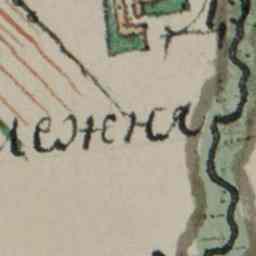 лежна